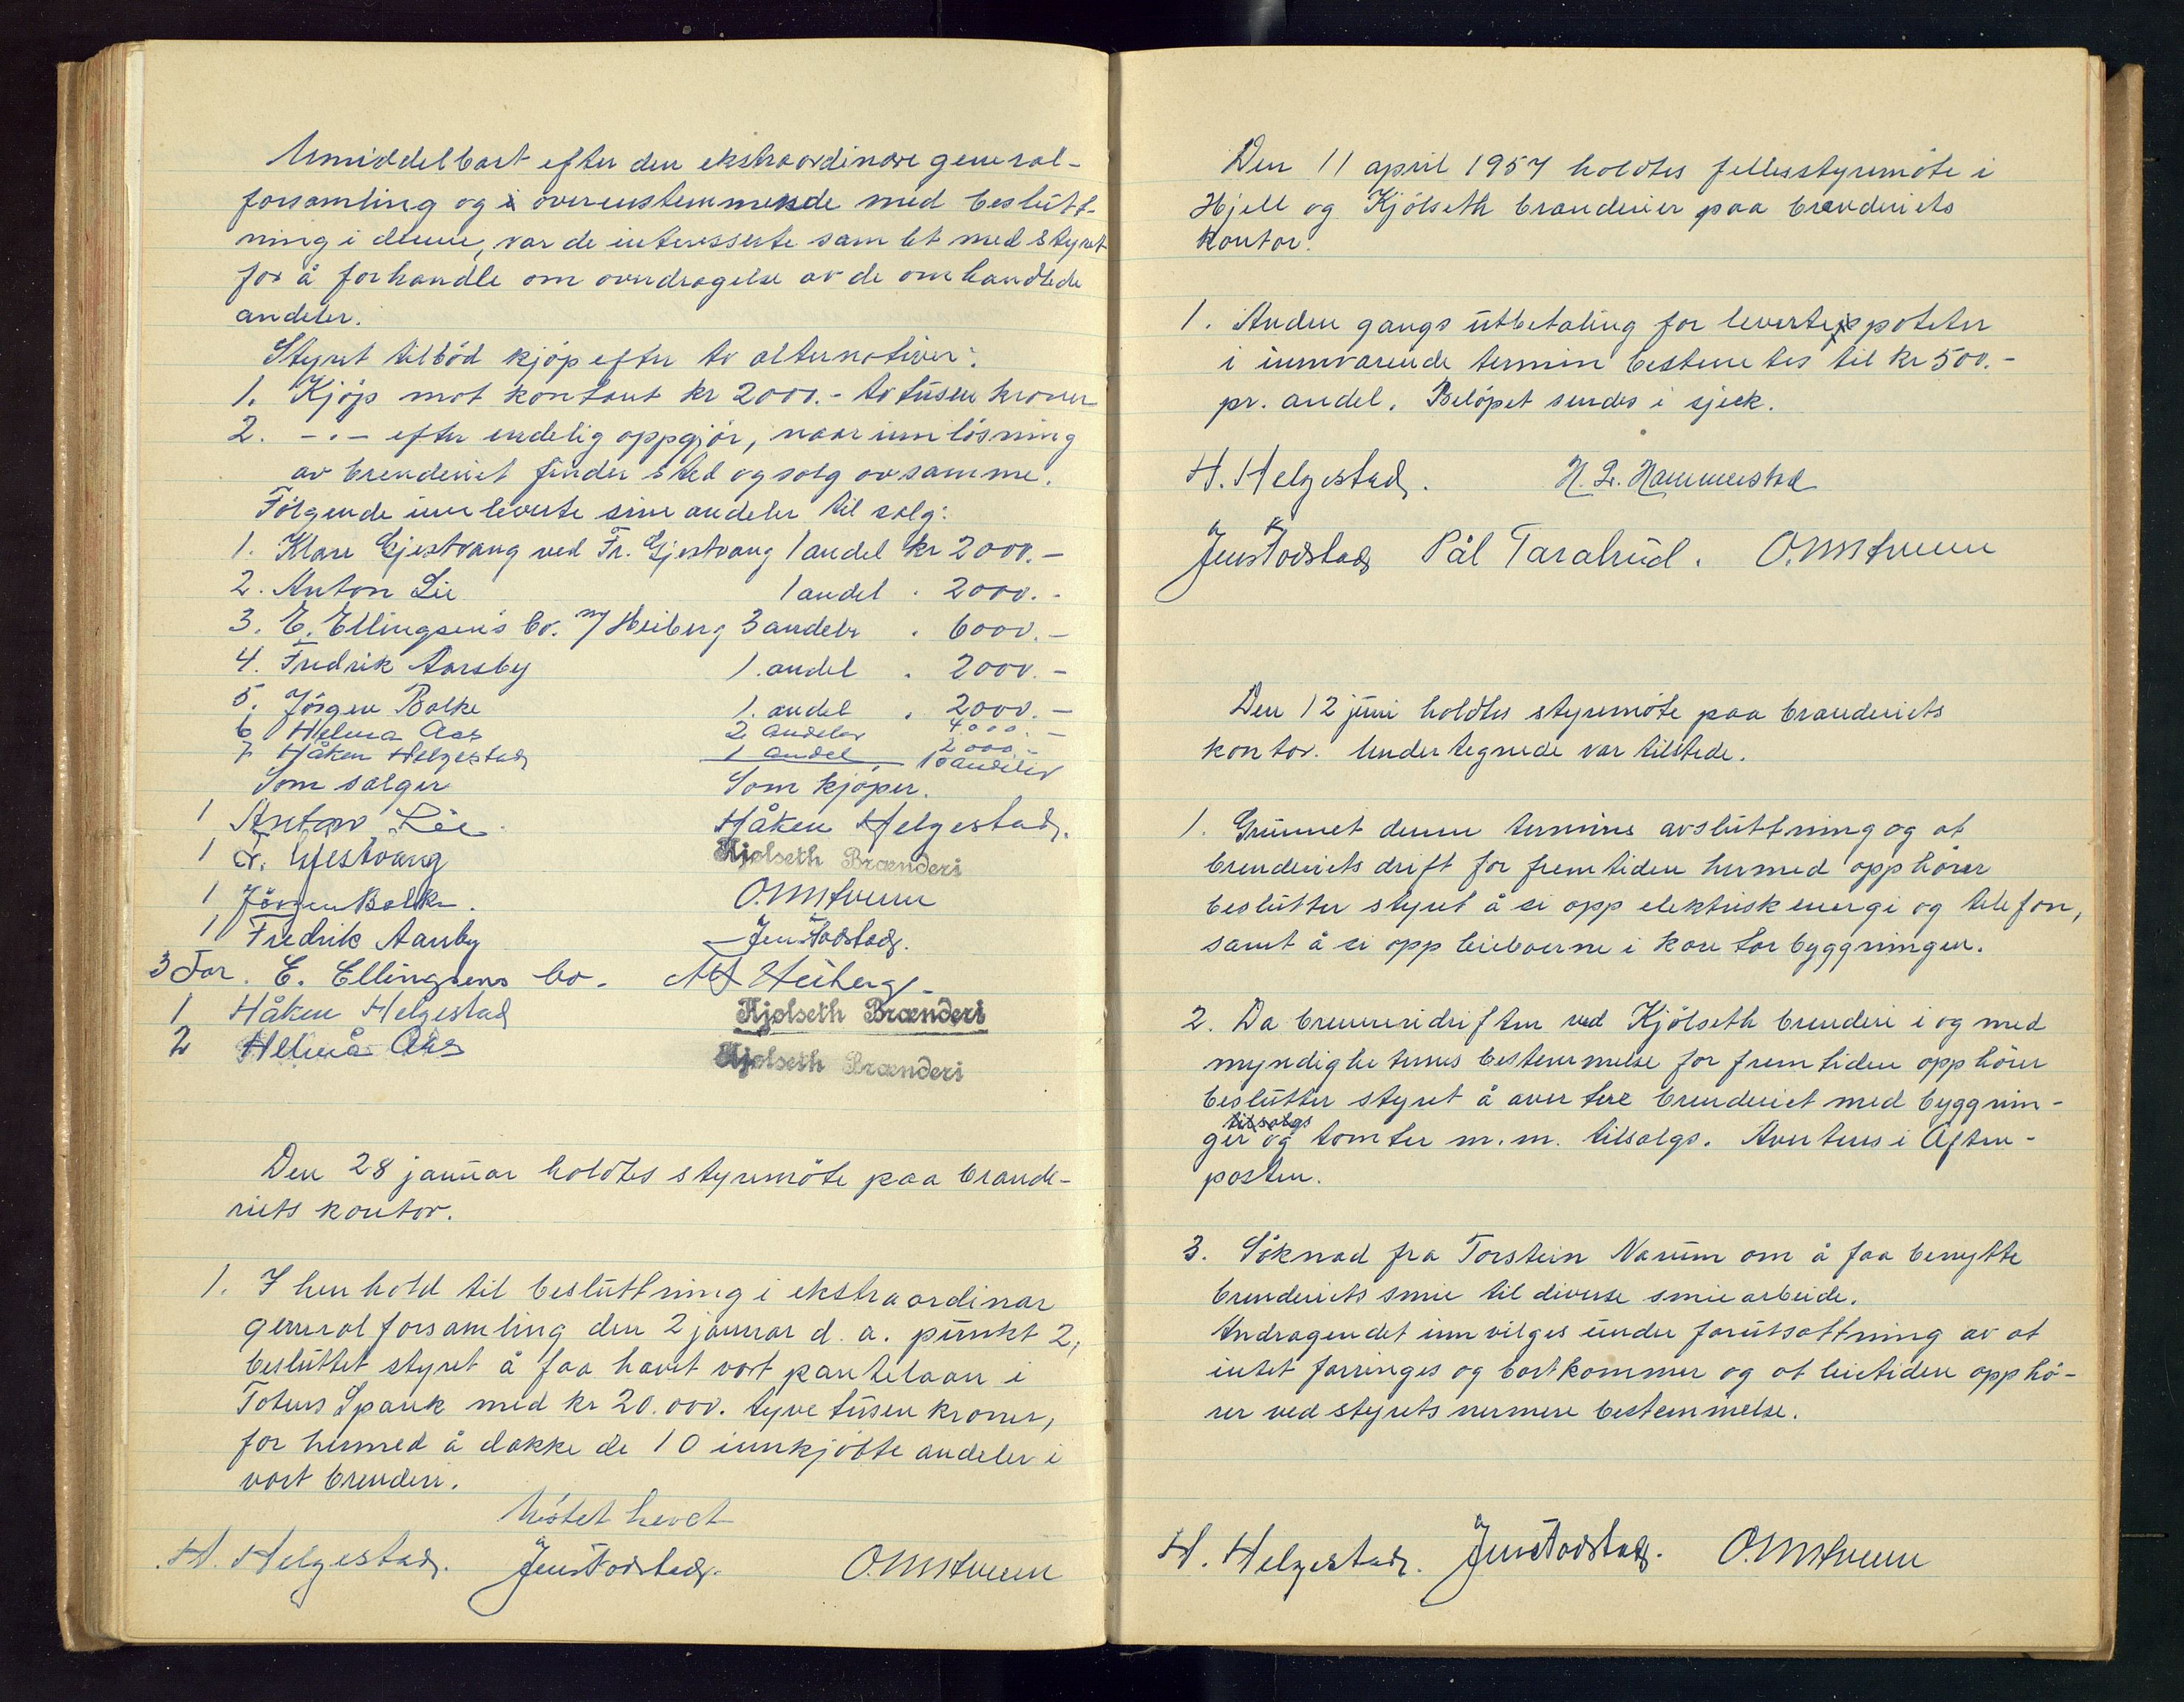 Umiddelbart efter den ekstraordinære general-
forsamling og i overenstemmende med beslutt-
ning i denne, var de interesserte samlet med styret
for å forhandle om overdragelse av de omhandlede
andeler.
Styret tilböd kjöp efter to alternativer:
1. Kjöp mot kontant kr 2000.- to tusen kroner
2. -"- efter endelig oppgjör, naar innlösning
av brenderiet finder sted og salg av samme.
Fölgende innleverte sine andeler til salg:
1. Klare Gjestvang ved Fr. Gjestvang 1 andel kr 2000.-
2. Anton Lie 1 andel " 2000.-
3. E. Ellingsen's bo. v/ Heiberg 3 andeler " 6000.-
4. Fredrik Aarsby 1. andel " 2000.-
5. Jörgen Balke 1. andel " 2000.-
6 Helma Aas 2 andeler 4.000.-
7 Håken Helgestad 1 andel 2000.-
10 andeler
Som sælger Som kjöper.
1 Anton Lie. Håken Helgestad.
1 Fr. Gjestvang Kjølseth Brænderi
1 Jörgen Balke. O.M. Stuen
1 Fredrik Aarsby Jens Todstad.
3 For. E. Ellingsens bo. Heiberg
1 Håken Helgestad Kjølseth Brænderi
2 Helma Aas Kjølseth Brænderi
Den 28 januar holdtes styremöte paa brænde-
riets kontor.
1. I henhold til besluttning i ekstraordinær
generalforsamling den 2 januar d. a. punkt 2,
besluttet styret å faa hævet vort pantelaan i
Totens Spbank med kr 20.000. tyve tusen kroner,
for hermed å dække de 10 innkjöbte andeler i
vort brenderi.
Möstet hevet
H. Helgestad. Jens Todstad. O.M. Stuen
Den 11 april 1957 holdtes fellesstyremöte i
Hjell og Kjölseth brænderier paa brænderiets
kontor.
1. Anden gangs utbetaling for leverte poteter
i innværende termin bestemtes til kr 500.-
pr. andel. Belöpet sendes i sjeck.
H. Helgestad. H. L. Hammerstad
Jens Todstad Pål Taralrud. O.M. Stuen
Den 12 juni holdtes styremöte paa brænderiets
kontor. Undertegnede var tilstede.
1. Grunnet denne termins avsluttning og at
brenderiets drift for fremtiden hermed opphörer
beslutter styret å si opp elektrisk energi og telefon,
samt å si opp leieboerne i kontorbyggningen.
2. Da brenneridriften ved Kjölseth brenderi i og med
myndighetenes bestemmelse for fremtiden opphörer
beslutter styret å avertere brenderiet med byggnin-
tilsalgs
ger og tomter m.m. tilsalgs. Averteres i Aften-
posten.
3. Söknad fra Torstein Narum om å faa benytte
brenderiets smie til diverse smiearbeide.
Andragendet innvilges under forutsættning av at
intet forringes og bortkommer og at leietiden opphö-
rer ved styrets nermere bestemmelse.
H. Helgestad. Jens Todstad. O.M. Stuen